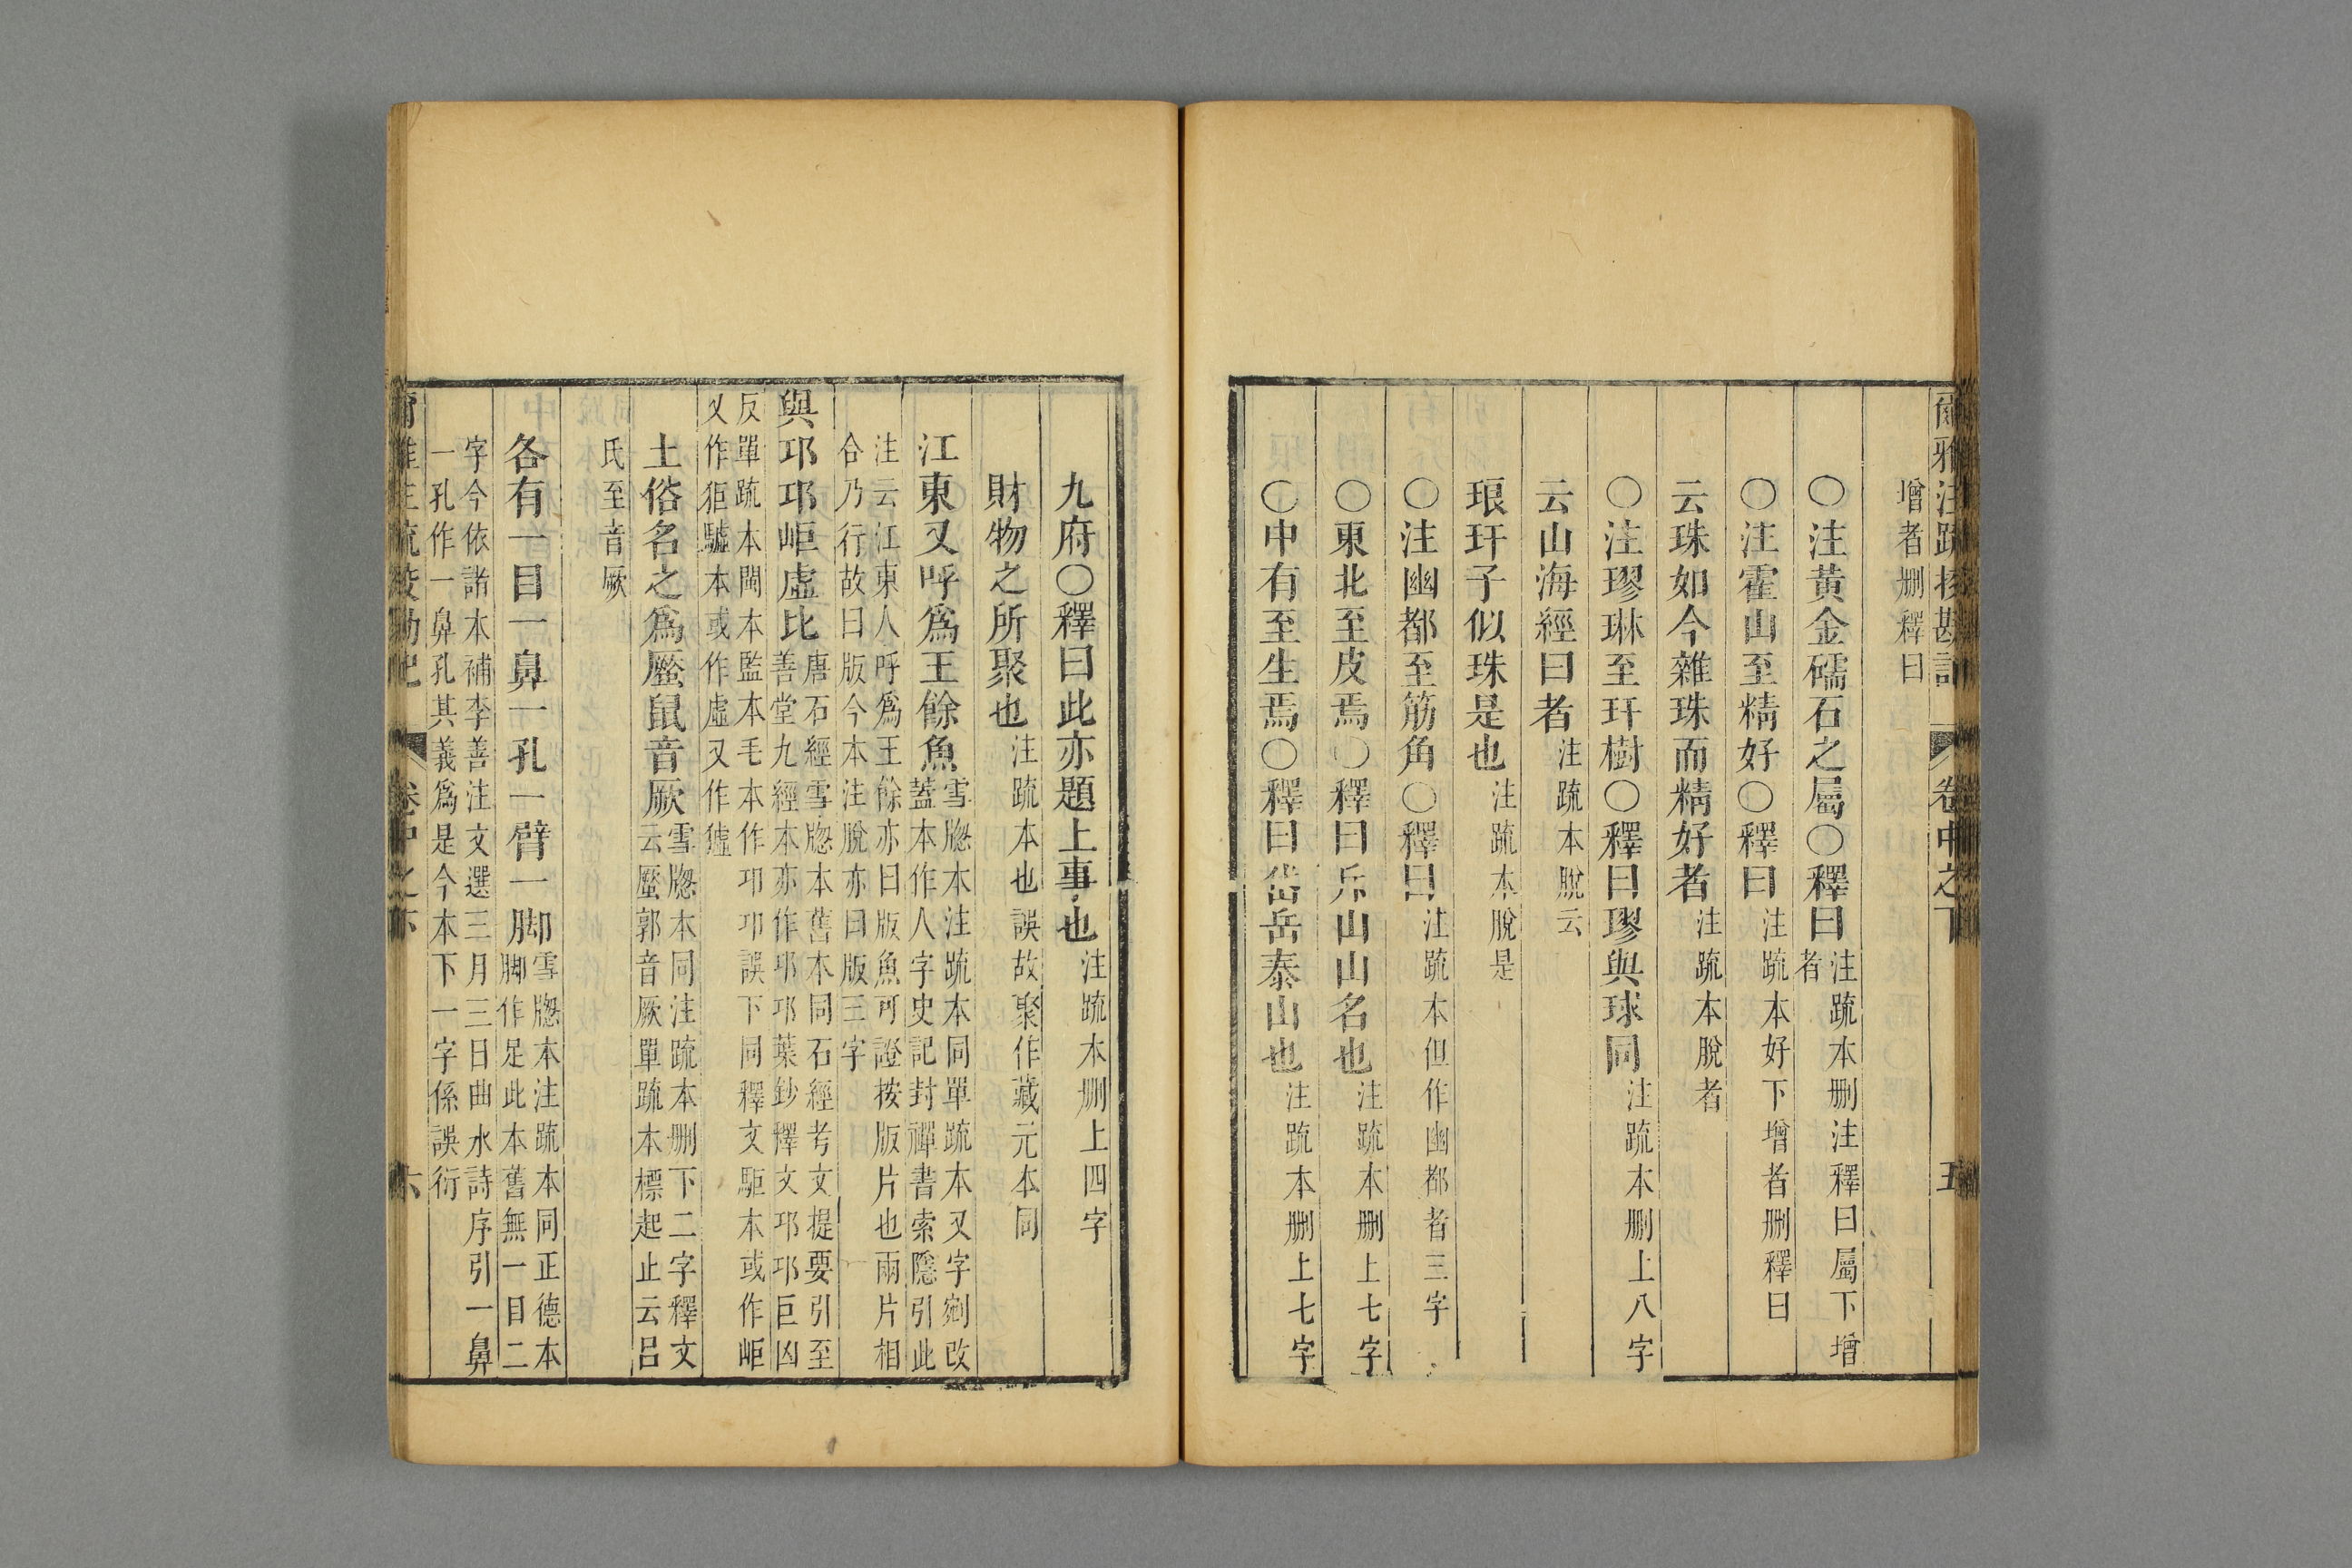 爾雅注疏挍勘記 卷中之下 五
增者刪釋曰
〇注黃金礝石之屬〇釋曰注疏本刪注釋曰屬下增
者
〇注霍山至精好〇釋曰注疏本好下增者刪釋曰
云珠如今雜珠而精好者注疏本脫者
〇注璆琳至玕樹〇釋曰璆與球同注疏本刪上八字
云山海經曰者注疏本脫云
琅玕子似珠是也注疏本脫是
〇注幽都至筋角〇釋曰注疏本但作幽都者三字
〇東北至皮焉〇釋曰斥山山名也注疏本刪上七字
〇中有至生焉〇釋曰岱岳泰山也注疏本刪上七字
九府〇釋曰此亦題上事也注疏本刪上四字
財物之所聚也注疏本也誤故聚作藏元本同
江東又呼爲王餘魚雪牕本注疏本同單疏本又字剜改
蓋本作人字史記封禪書索隱引此
注云江東人呼爲王餘亦曰版魚可證按版片也兩片相
合乃行故曰版今本注脫亦曰版三字
與邛邛岠虛比唐石經雪牕本舊本同石經考文提要引至
善堂九經本亦作邛邛葉鈔釋文邛邛巨凶
反單疏本閩本監本毛本作卭卭誤下同釋文駏本或作岠
又作狚驉本或作虛又作㺞
土俗名之爲蟨鼠音厥雪牕本同注疏本刪下二字釋文
云蟨郭音厥單疏本標起止云呂
氏至音厥
各有一目一鼻一孔一臂一脚雪牕本注疏本同正德本
脚作足此本舊無一目二
字今依諸本補李善注文選三月三日曲水詩序引一鼻
一孔作一鼻孔其義爲是今本下一字係誤衍
爾雅注疏挍勘記 卷中之下 六